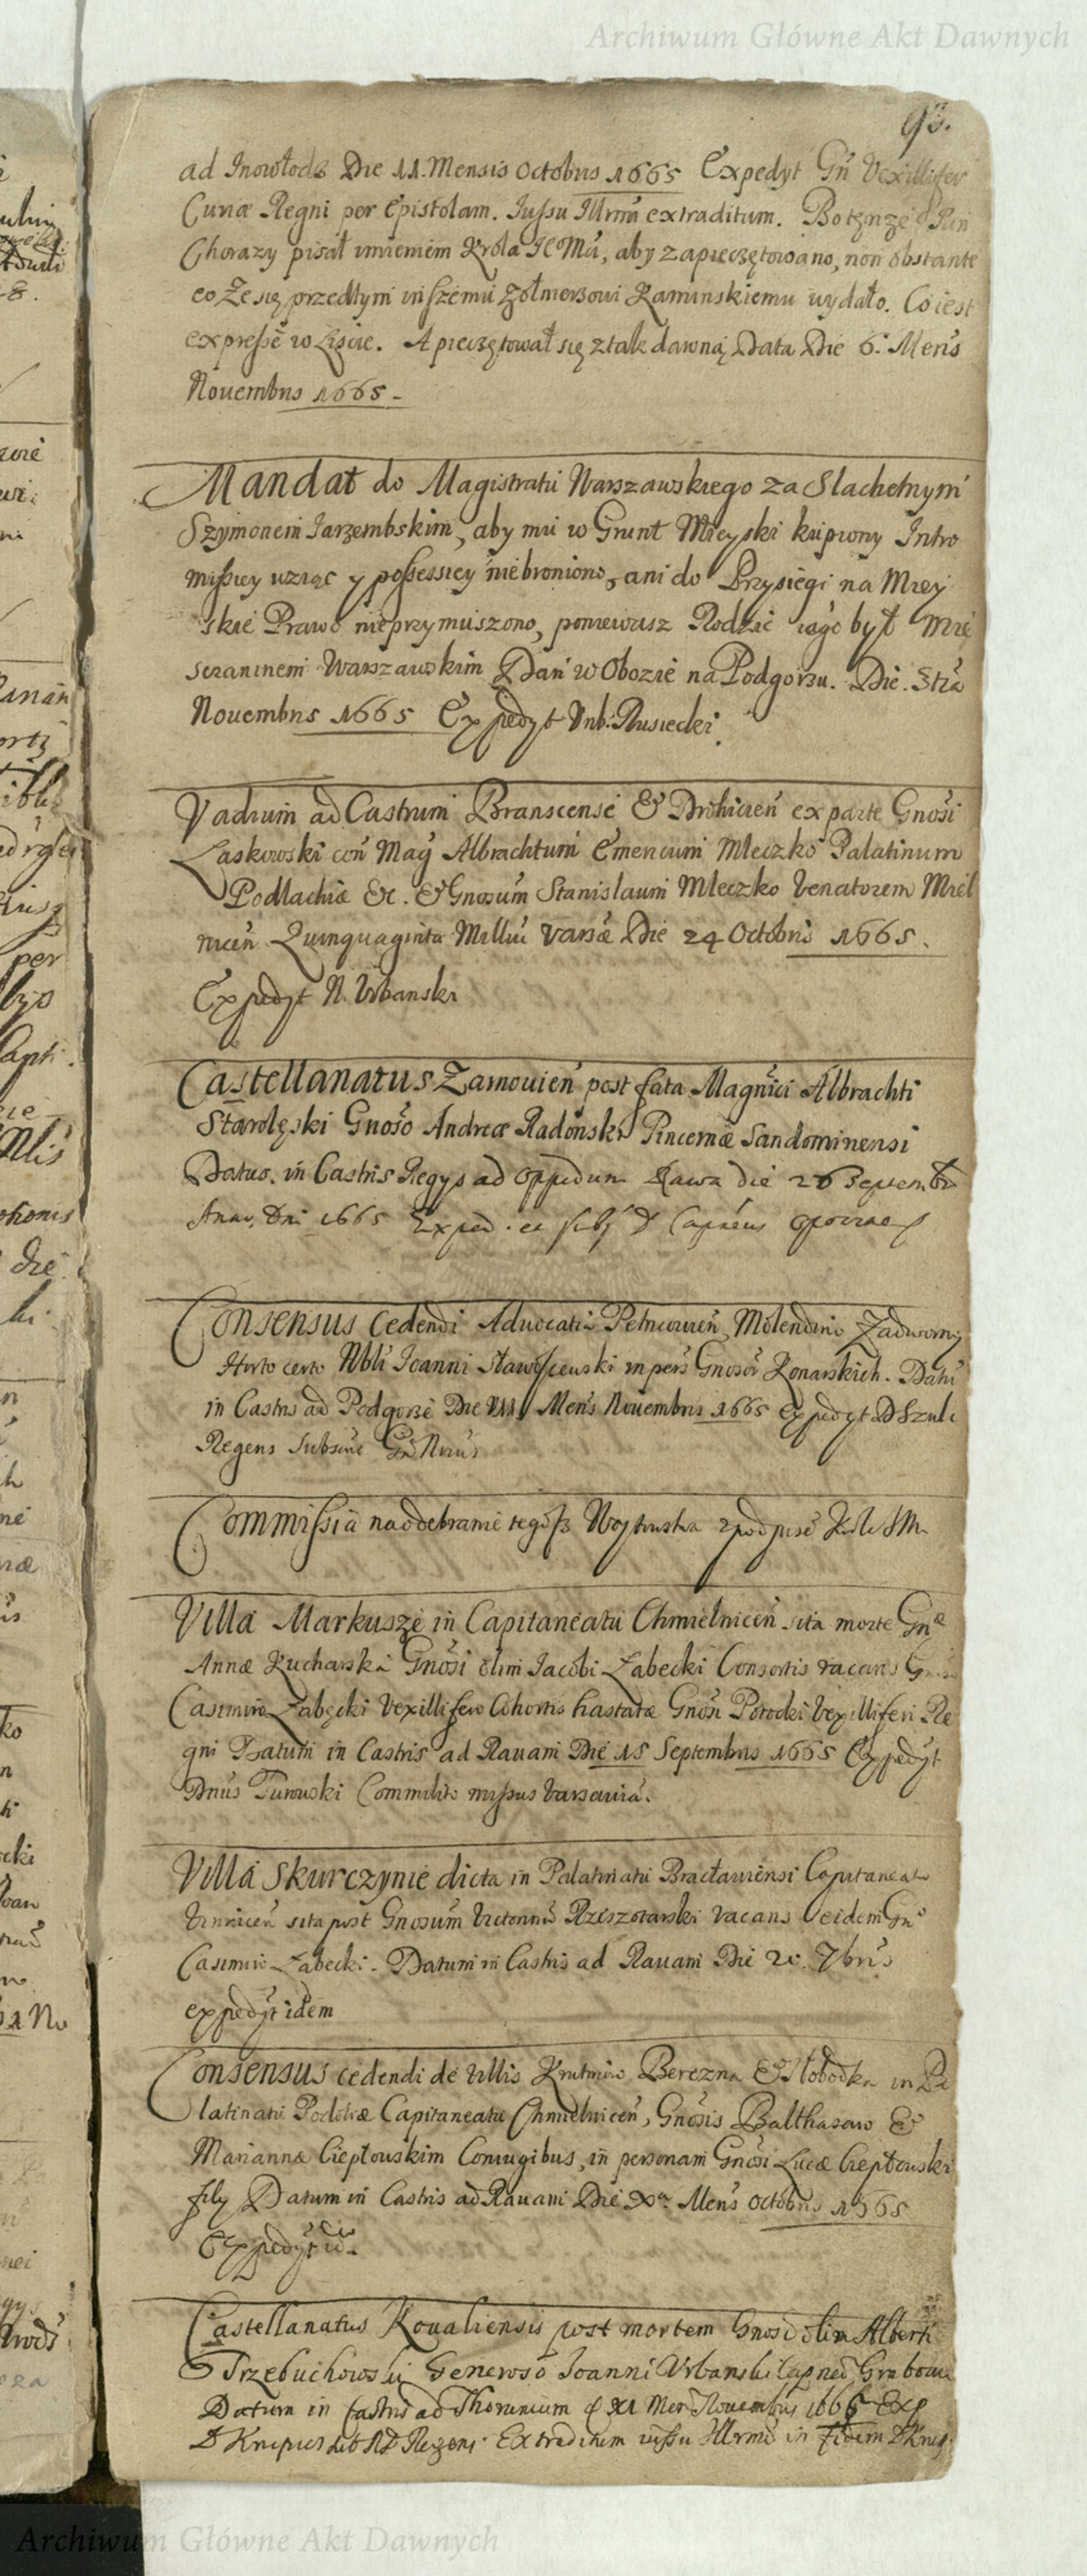 Archiwum Główne Akt Dawnych
93.
ad Inowłodz Die 11. Mensis Octobris 1665 Expedyt Gn̄ Vexillifer
Curiæ Regni per Epistolam. Iussu Illrmi extraditum. Potym że Pan
Chorazy pisał imieniem Krola IE Mci, aby zapieczętowano, non obstante
co że się przedtym inszemu żołnierzowi Kaminskiemu wydało. Co iest
expresse w Liście. A pieczętował się z tak dawną Data Die 6. Mens
Nouembris 1665 -
Mandat do Magistratu Warszawskiego za Slachetnym
Szymonem Iarzembskim, aby mu w Grunt Mieyski kupiony Intro
missiey uziąc y possessiey niebroniono, ani do Przysięgi na Miey
skie Prawo nieprzymuszono, poniewasz Rodzic iego był Mie
sczaninem Warszawskim Dan w Obozie na Podgorzu. Die 3tia
Nouembris 1665 Expedyt Urb. Rusiecki.
Vadium ad Castrum Branscense & Drohicień ex parte Gnosi
Laskowski con Mag Albrachtum Emericum Mleczko Palatinum
Podlachiæ &c. & Gnosum Stanislaum Mleczko Venatorem Miel
nicen Quinquaginta Milliu Varsæ Die 24 Octobris 1665.
Expedyt N. Urbanski
Castellanatus Zawouien post fata Magnici Albrachti
Starolęski Gnoso Andreæ Radonski Pincernæ Sandominensi
Datus. in Castris Regys ad oppidum Rawa die 26 Septembr
Anno Dni 1665 Exped. et subs D Capneus
Consensus Cedendi Advocatia Petricouien, Molendino Zadworny
Horto certo Nbli Ioanni in pers Gnosor Konarskich. Datu
in Castris ad Podgorze Die VII Mens Nouembris 1665 Expedyt D Szulc
Regens
Commissia na odebranie tegosz Woytowstwa z podpise Krola IM
Villa Markusze in Capitaneatu Chmielnicen sita morte Gnæ
Annæ Kucharska Gnosi olim Iacobi Zabecki Consortis vacans
Casimiro Zabęcki Vexillifero Cohortis hastatæ Gnosi Potocki Vexilliferi Re
gni Datum in Castris ad Rauam Die 15 Septembris 1665 Expedyt
Dnus Turowski Commilito missus Varsauia.
Villa Skurczynie dicta in Palatinatu Bracłauiensi Capitaneat
Vinnicen sita post Gnosum Victorinu Rzeszotarski vacans eidem Gn
Casimiro Zabecki. Datum in Castris ad Rauam Die 20. 7bris
expedyt idem
Consensus cedendi de Villis Krutniow Berezna & Słobodka in Pa
latinatu Podoliæ Capitaneatu Chmielnicen, Gnosis Balthasaro &
Marianna Ciepłouskim Coniugibus, in personam Gnosi Lucæ Ciepłouski
fily Datum in Castris ad Rauam Die Xa Mens Octobris 1665
Expedyt id.
Castellanatus Koualiensis post mortem Gnosi olim Alberti
Trzebuchowski Generoso Ioanni Urbanski Capneo Grabow
Datum in Castris ad Thorunium d XI Men Nouembris 1665 Exp
D Knipius Regens Extraditum iussu Illrmi in fidem D Knip
Archiwum Główne Akt Dawnych